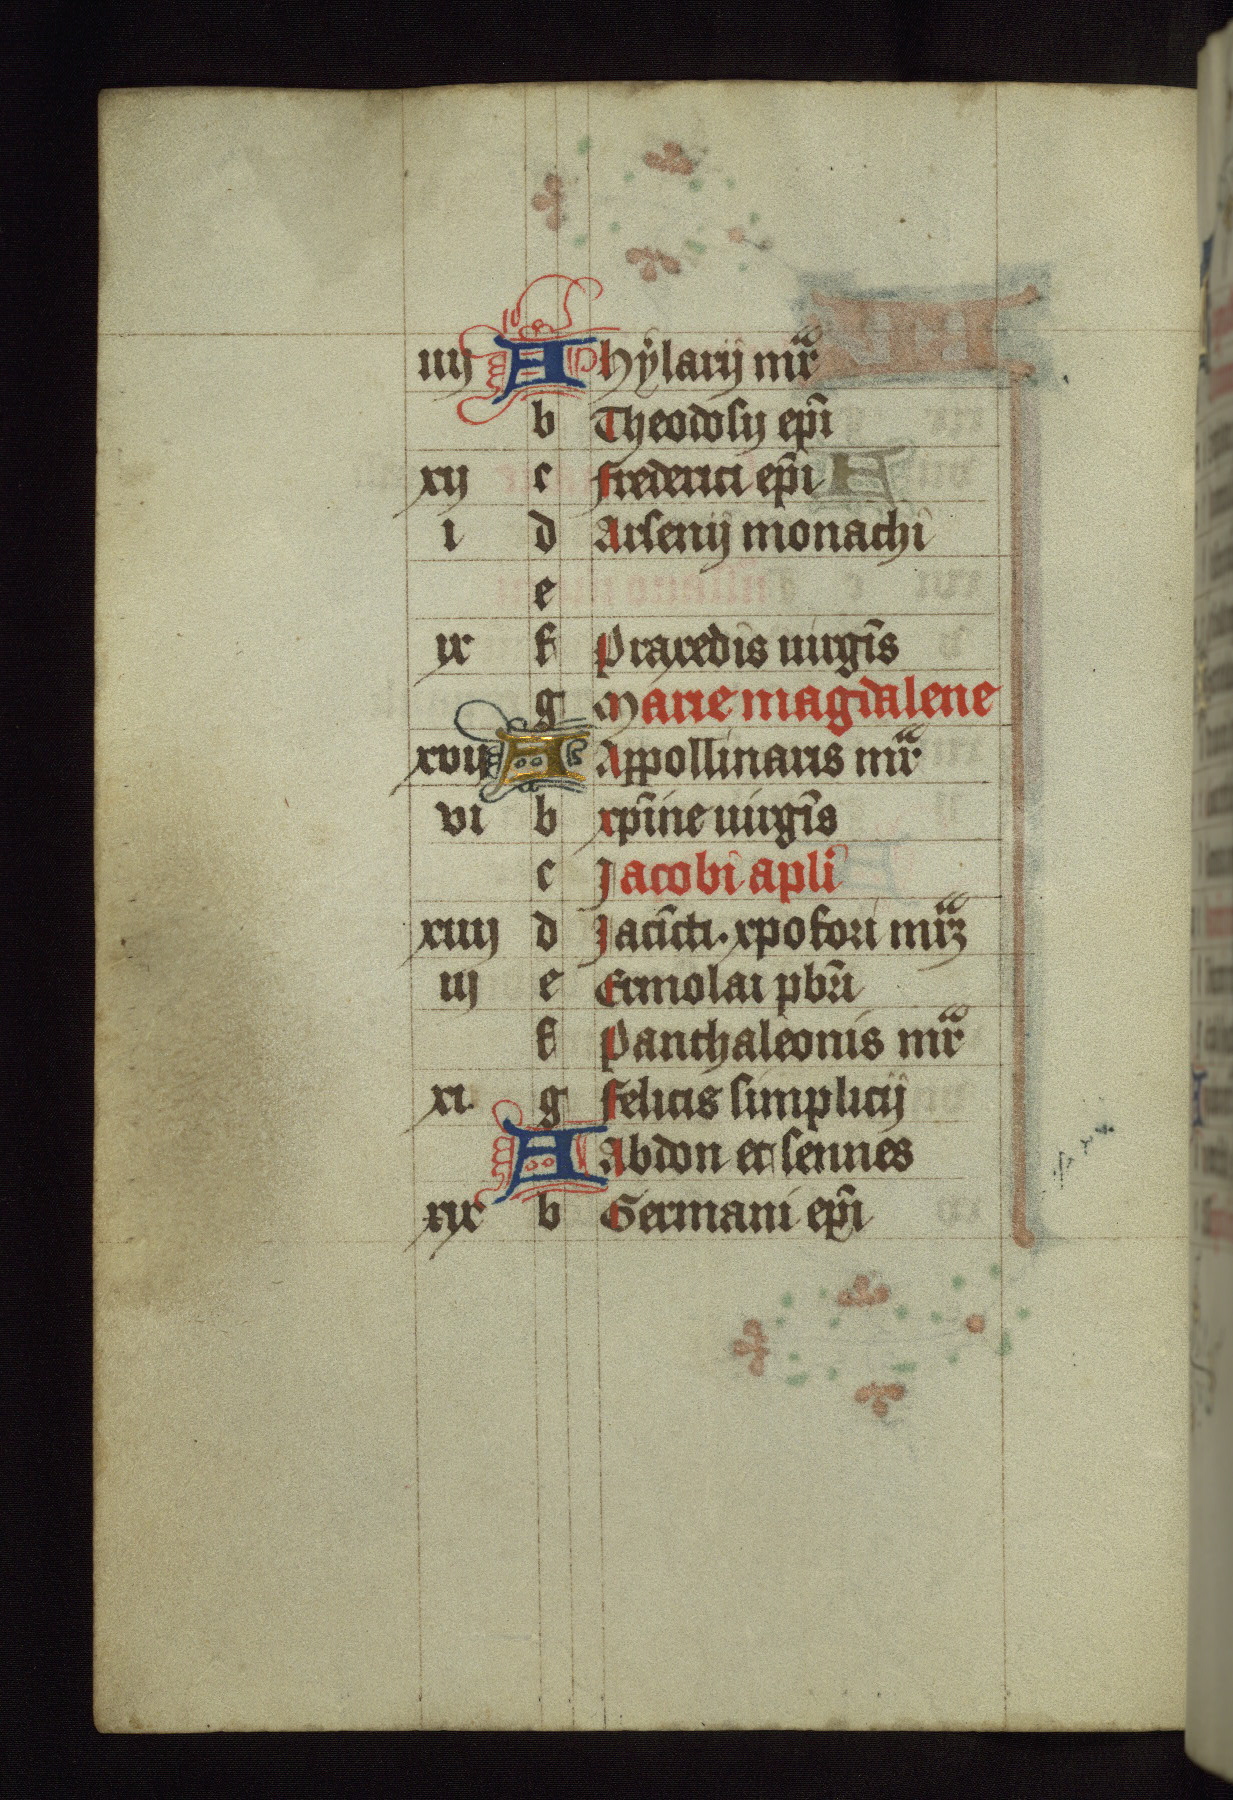 iiij A Hÿlarij mr̃
b Theodosij ep̃i
xij c Frederici ep̃i
i d Arsenij monachi
e
ix f Praxedis uirgĩs
g Marie magdalene
xvij A Appollinaris mr̃
vi b xp̃ine uirgĩs
c Jacobi apl̃i
xiiij d Jacĩcti. xpofori mr̃ꝫ
iij e Ermolai pbr̃i
f Panthaleonis mr̃
xi. g Felicis simplicij
A Abdon et sennes
xix b Germani ep̃i